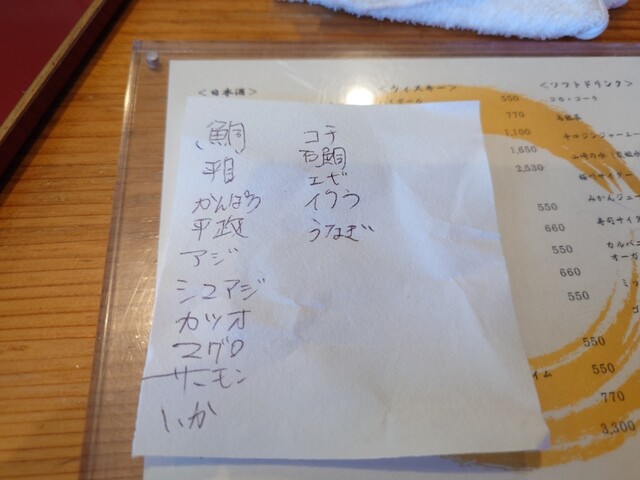 <日本酒>
鯛
平目
かんぱち
平政
アジ
シマアジ
カツオ
マグロ
サーモン
いか
コチ
石鯛
エビ
イクラ
うなぎ
<ウィスキー>
550
770
1,100
1,650
2,530
550
660
660
550
550
550
770
3,300
イム
<ソフトドリンク>
コカ・コーラ
烏龍茶
辛口ジンジャーエー
みかんジュー
カルピ
オーガ
ミッ